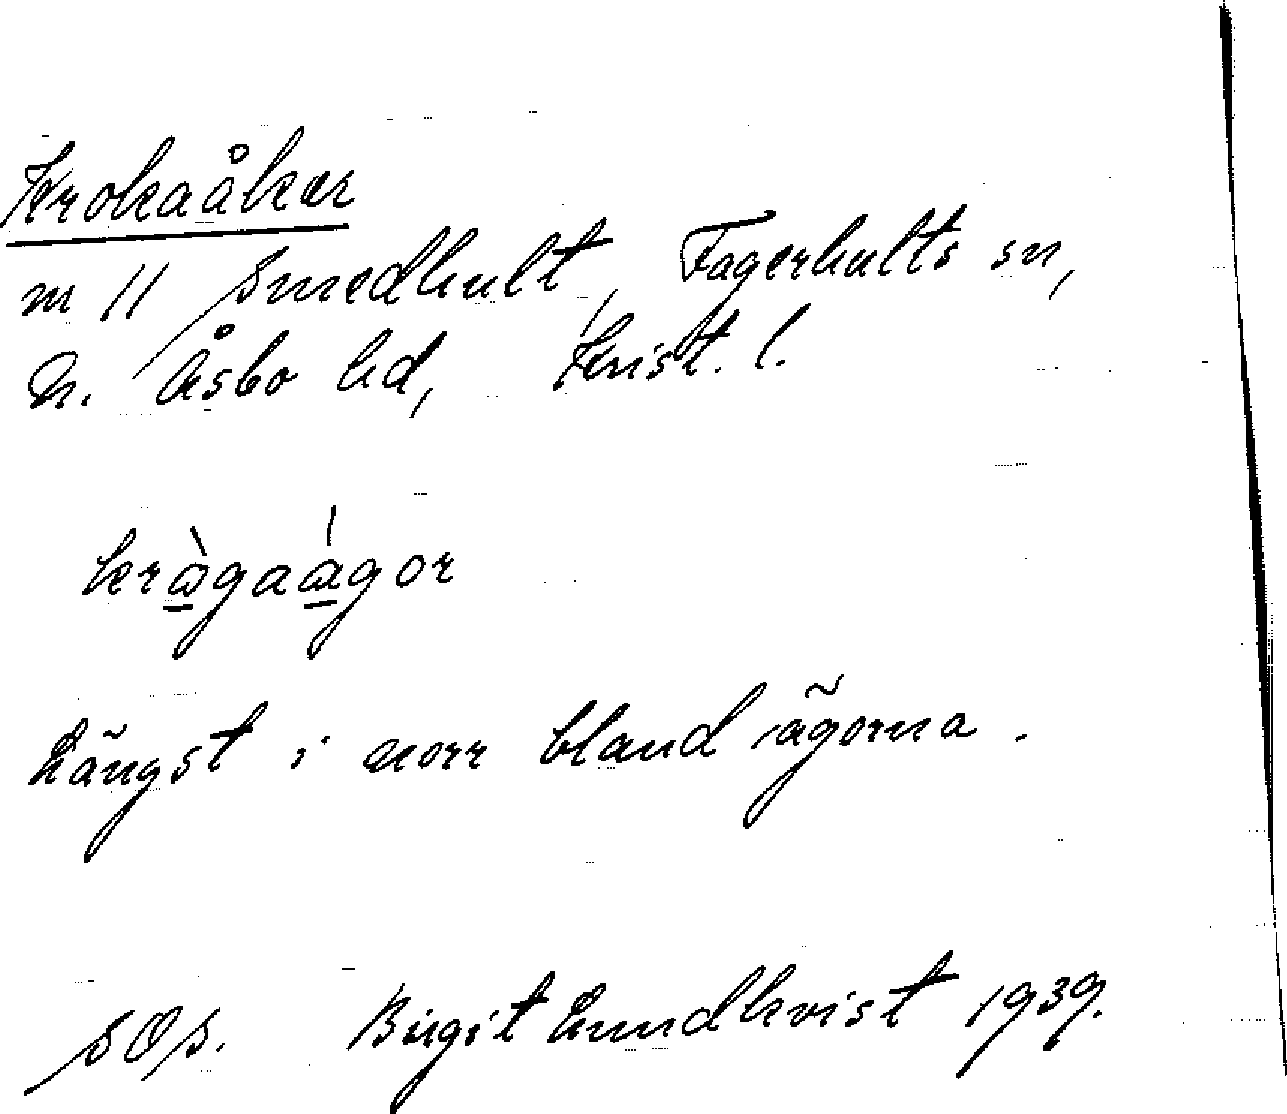 Krokaåkar
nr 11 Smedhult, Fagerhults sn,
N. Åsbo hd, Krist. l.
kràgaágor
Längst i norr bland ägorna.
SOS. Birgit Lundkvist 1939.